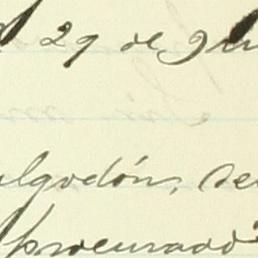 29 de
algodón, se
procurado